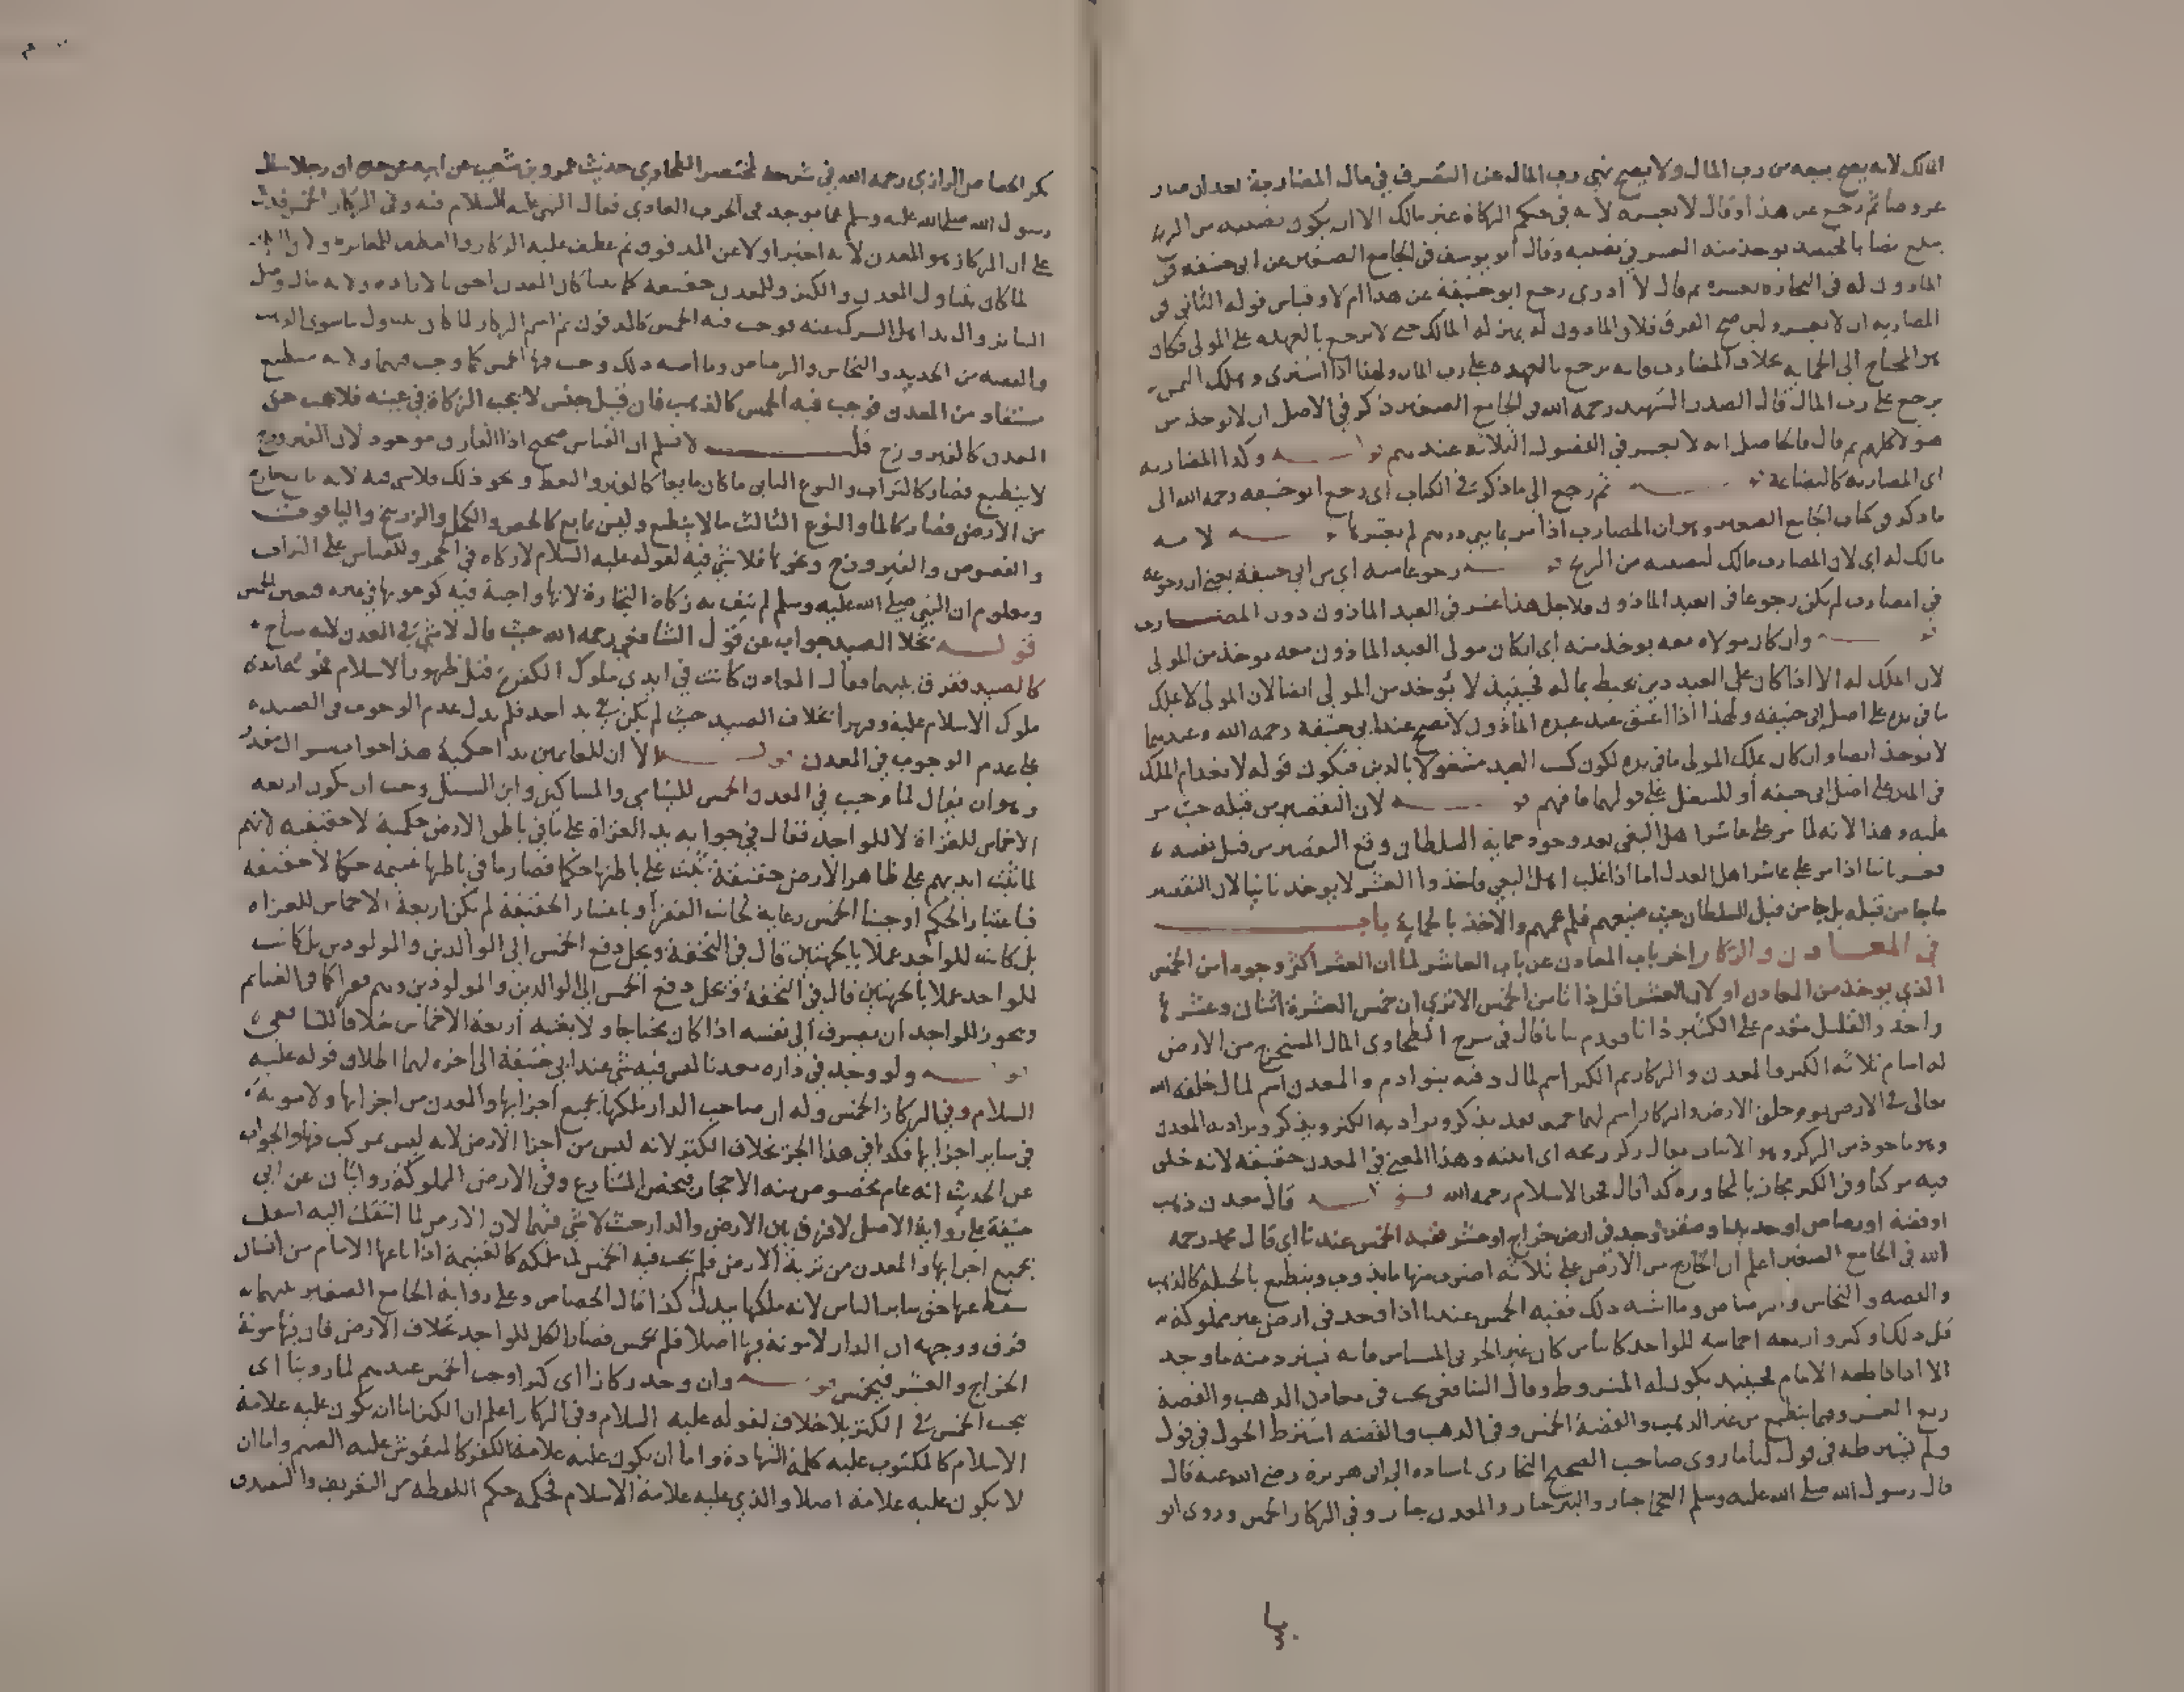 المالك لانه يصح بيعه من رب المال ولا يصح نهي رب المال عن التصرف في مال المضاربة بعد ان صار
عروضا ثم رجع عن هذا وقال لا يعشره لانه في حكم الزكاة غير مالك الا ان يكون نصيبه من الربح
يبلغ نصابا فحينئذ يوخذ منه العشر في نصيبه وقال ابو يوسف في الجامع الصغير عن ابي حنيفة في
الماذون له في التجارة يعشره ثم قال لا ادري رجع ابو حنيفة عن هذا ام لا وقياس قوله الثاني في
المضاربة ان لا يعشر وليس صح الفرق فلان الماذون له يرى له المالك حتى لا يرجع بالعهدة على المولى فكان
هو المحتاج الى الحماية بخلاف المضارب فانه يرجع بالعهدة على رب المال ولهذا اذا اشترى وهلك الثمن
يرجع على رب المال قال الصدر الشهيد رحمه الله في الجامع الصغير ذكر في الاصل ان لا يوخذ من
هولا كلهم ثم قال فالحاصل انه لا يعشر في الفصول الثلاثة عندهم قوله وكذا المضاربة
اي المضاربة كالبضاعة قوله ثم رجع الى ما ذكر في الكتاب اي رجع ابو حنيفة رحمه الله الى
ما ذكر في كتاب الجامع الصغير وهو ان المضارب اذا مر بمايتي درهم لم يعشرها قوله لانه
مالك له اي لان المضارب مالك لنصيبه من الربح قوله رجوعا منه اي من ابي حنيفة يعني ان رجوعه
في المضارب لم يكن رجوعا في العبد الماذون فلاجل هذا عشر في العبد الماذون دون المضارب
قوله وان كان مولاه معه يوخذ منه اي ان كان مولى العبد الماذون معه يوخذ من المولى
لان الملك له الا اذا كان على العبد دين يحيط بماله فحينئذ لا يوخذ من المولى ايضا لان المولى لا يملك
ما في يده على اصل ابي حنيفة ولهذا اذا اعتق عبد عبده الماذون لا يصح عند ابي حنيفة رحمه الله وعندهما
لا يوخذ ايضا وان كان يملك المولى ما في يده لكون كسب العبد مشغولا بالدين فيكون قوله لانعدام الملك
في المدين على اصل ابي حنيفة او للشغل على قولهما فافهم قوله لان التقصير من قبله حيث مر
عليه وهذا لانه لما مر على عاشر اهل البغي بعد وجود حماية السلطان وقع التقصير من قبل نفسه
فعشر ثانيا اذا مر على عاشر اهل العدل اما اذا غلب اهل البغي واخذوا العشر لا يوخذ ثانيا لان التقصير
ما جا من قبله بل جا من قبل السلطان حيث ضيعهم فلم يحمهم والاخذ بالحماية باب
في المعادن والركاز اخر باب المعادن عن باب العاشر لما ان العشر اكثر وجودا من الخمس
الذي يوخذ من المعادن او لان العشر اقل ذاتا من الخمس الا ترى ان خمس العشرة اثنان وعشرها
واحد والقليل مقدم على الكثير ذاتا فقدم بيانا قال في شرح الطحاوي المال المستخرج من الارض
له اسام ثلاثة الكنز والمعدن والركاز ثم الكنز اسم لمال دفنه بنو ادم والمعدن اسم لمال خلقه الله
تعالى في الارض يوم خلق الارض والركاز اسم لهما جميعا فقد يذكر ويراد به الكنز ويذكر ويراد به المعدن
وهو ماخوذ من الركز وهو الاثبات يقال ركز رمحه اي اثبته وهذا المعنى في المعدن حقيقة لانه خلق
فيه مركبا وفي الكنز مجاز بالمجاورة كذا قال فخر الاسلام رحمه الله قوله قال معدن ذهب
او فضة او رصاص او حديد او صفر وجد في ارض خراج او عشر ففيه الخمس عندنا اي قال محمد رحمه
الله في الجامع الصغير اعلم ان الخارج من الارض على ثلاثة اضرب منها ما يذوب وينطبع بالحيلة كالذهب
والفضة والنحاس والرصاص وما اشبه ذلك ففيه الخمس عندنا اذا وجد في ارض غير مملوكة
قل ذلك او كثر واربعة اخماسه للواجد كاينا من كان غير الحربي المستامن فانه يسترد منه ما وجد
الا اذا قاطعه الامام فحينئذ يكون له المشروط وقال الشافعي يجب في معادن الذهب والفضة
ربع العشر وفيما ينطبع من غير الذهب والفضة الخمس وفي الذهب والفضة اشترط الحول في قول
ولم يشترطه في قول لنا ما روى صاحب الصحيح البخاري باسناده الى ابي هريرة رضي الله عنه قال
قال رسول الله صلى الله عليه وسلم العجما جبار والبير جبار والمعدن جبار وفي الركاز الخمس وروى ابو
بكر الجصاص الرازي رحمه الله في شرحه لمختصر الطحاوي حديث عمرو بن شعيب عن ابيه عن جده ان رجلا سال
رسول الله صلى الله عليه وسلم عما يوجد في الخرب العادي فقال النبي عليه السلام فيه وفي الركاز الخمس فدل
على ان الركاز هو المعدن لانه اخبر اولا عن المدفون ثم عطف عليه الركاز والعطف للمغايرة
لما كان يتناول المعدن والكنز وللمعدن حقيقة كما بينا كان المعدن احق بالارادة ولانه مال
والفضة من الحديد والنحاس والرصاص وما اشبه ذلك وجب فيها الخمس كما وجب فيهما ولانه منطبع
مستفاد من المعدن فوجب فيه الخمس كالذهب فان قيل جنس لا يجب الزكاة في عينه فلا يجب حق
المعدن كالفيروزج قلت لا نسلم ان القياس صحيح اذا الفارق موجود لان الفيروزج
لا ينطبع فصار كالتراب والنوع الثاني ما كان مايعا كالقير والنفط ونحو ذلك فلا شي فيه لانه ما يخارج
من الارض فصار كالما والنوع الثالث ما لا ينطبع وليس بمايع كالجص والكحل والزرنيخ والياقوت
والفصوص والفيروزج ونحوها فلا شي فيه لقوله عليه السلام لا زكاة في الحجر وللقياس على التراب
ومعلوم ان النبي صلى الله عليه وسلم لم ينف به زكاة التجارة لانها واجبة فيه كوجوبها في غيره فتعين الخمس
قوله بخلاف الصيد جواب عن قول الشافعي رحمه الله حيث قال لا شي في المعدن لانه مباح
كالصيد ففرق بينهما فقال المعادن كانت في ايدي ملوك الكفرة قبل ظهور الاسلام
ملوك الاسلام غلبة وقهرا بخلاف الصيد حيث لم يكن في يد احد فلم يدل عدم الوجوب في الصيد
على عدم الوجوب في المعدن قوله الا ان للغانمين يدا حكمية هذا جواب سوال مقدر
وهو ان يقال لما وجب في المعدن الخمس لليتامى والمساكين وابن السبيل وجب ان يكون اربعة
الاخماس للغزاة لا للواجد فقال في جوابه يد الغزاة على ما في باطن الارض حكمية لا حقيقية لانهم
لما ثبت ايديهم على ظاهر الارض حقيقة ثبت على باطنها حكما فصار ما في باطنها غنيمة حكما لا حقيقة
فباعتبار الحكم اوجبنا الخمس رعاية لجانب الفقرا وباعتبار الحقيقة لم يكن اربعة الاخماس للغزاة
بل كانت للواجد عملا بالجهتين قال في التحفة ويحل دفع الخمس الى الوالدين والمولودين بل كانت
للواجد عملا بالجهتين قال في التحفة ويحل دفع الخمس الى الوالدين والمولودين وهم فقرا كما في الغنايم
ويجوز للواجد ان يصرف الى نفسه اذا كان محتاجا ولا يغنيه اربعة الاخماس خلافا للشافعي
قوله ولو وجد في داره معدنا فليس فيه شي عند ابي حنيفة الى اخره لهما اطلاق قوله عليه
السلام وفي الركاز الخمس وله ان صاحب الدار ملكها بجميع اجزايها والمعدن من اجزايها ولا مونة
في ساير اجزايها فكذا في هذا الجز بخلاف الكنز لانه ليس من اجزا الارض لانه ليس بمركب فيها والجواب
عن الحديث انه عام مخصوص منه الاحجار فيخص المتنازع وفي الارض المملوكة روايتان عن ابي
حنيفة على رواية الاصل لا فرق بين الارض والدار حيث لا شي فيهما لان الارض لما انتقلت اليه انتقلت
بجميع اجزايها والمعدن من تربة الارض فلم يجب فيه الخمس لما ملكه كالغنيمة اذا باعها الامام من انسان
سقط عنها حق ساير الناس لانه ملكها ببدل كذا قال الجصاص وعلى رواية الجامع الصغير بينهما
فرق ووجهه ان الدار لا مونة فيها اصلا فلم يخمس فصار الكل للواجد بخلاف الارض فان فيها مونة
الخراج والعشر فيخمس قوله وان وجد ركازا اي كنزا وجب الخمس عندهم لما روينا اي
يجب الخمس في الكنز بلا خلاف لقوله عليه السلام وفي الركاز اعلم ان الكنز اما ان يكون عليه علامة
الاسلام كالمكتوب عليه كلمة الشهادة واما ان يكون عليه علامة الكفر كالمنقوش عليه الصنم واما ان
لا يكون عليه علامة اصلا والذي عليه علامة الاسلام فحكمه حكم اللقطة من التعريف والتصدق